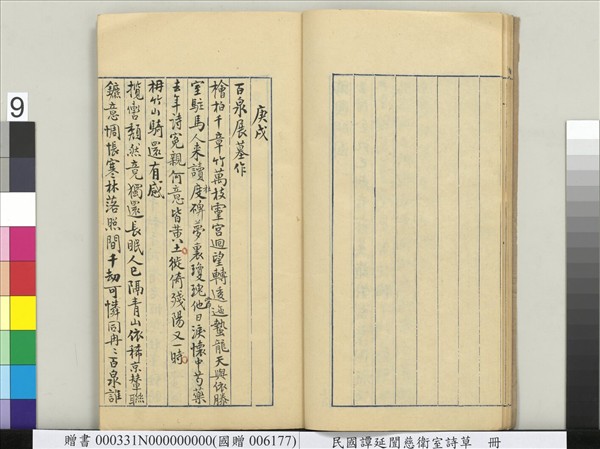 庚戌
百泉展墓作
檜柏千章竹萬枝靈宮迴望轉逶迤蟄龍天與依滕
室駐馬人來讀度碑夢裏瓊瑰他日淚懷中芍藥
去年詩冤親何意皆黃土徙倚殘陽又一時
冉竹山騎還有感
攬轡頹然竟獨還長眠人已隔青山依稀京輦聯
鑣意惆悵寒林落照間千劫可憐同冉冉百泉誰
9
贈書 000331N000000000(國贈 006177)
民國譚延闓慈衛室詩草 冊